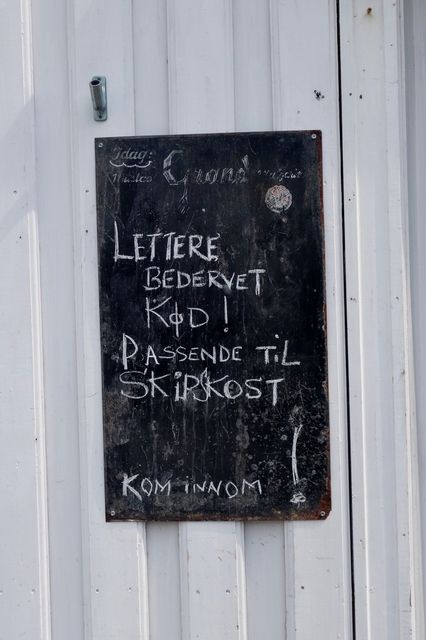 Idag:
Grand
LETTERE
BEDERVET
KØD!
PASSENDE TIL
SKIPSKOST
KOM INNOM !